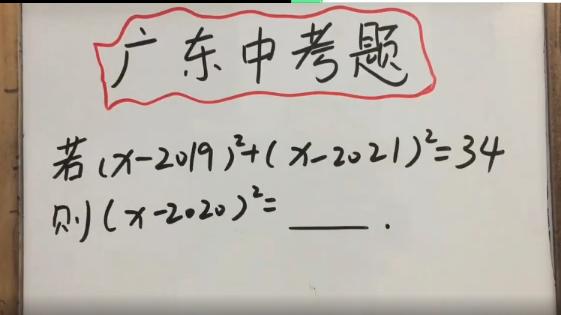 广东中考题
若(x-2019)²+(x-2021)²=34
则(x-2020)²=____.